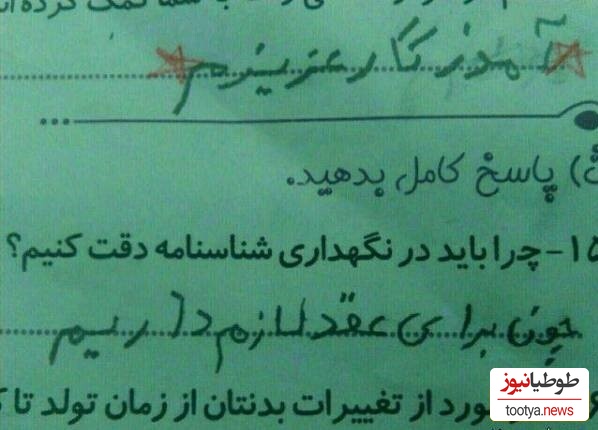 با شما کمک کرده
آمدزگار عزیزم
ث) پاسخ کامل بدهید.
۱۵- چرا باید در نگهداری شناسنامه دقت کنیم؟
چون برای عقد لازم داریم
مورد از تغییرات بدنتان از زمان تولد تا
طوطیانیوز
tootya.news